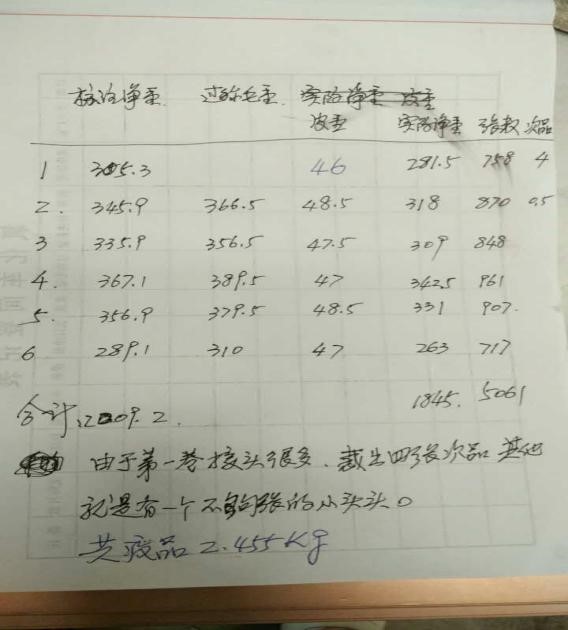 标注净重 过称毛重 皮重
实际净重 张数 次品
1 305.3 46 281.5 758 4
2. 345.9 366.5 48.5 318 870 0.5
3 335.9 356.5 47.5 309 848
4. 367.1 389.5 47 342.5 961
5. 356.9 379.5 48.5 331 907.
6 289.1 310 47 263 717
1845. 5061
合计: 2009.2.
由于第一卷接头很多、裁出四张次品 其他
就是有一个不够张的小头头。
共疫品 2.455Kg